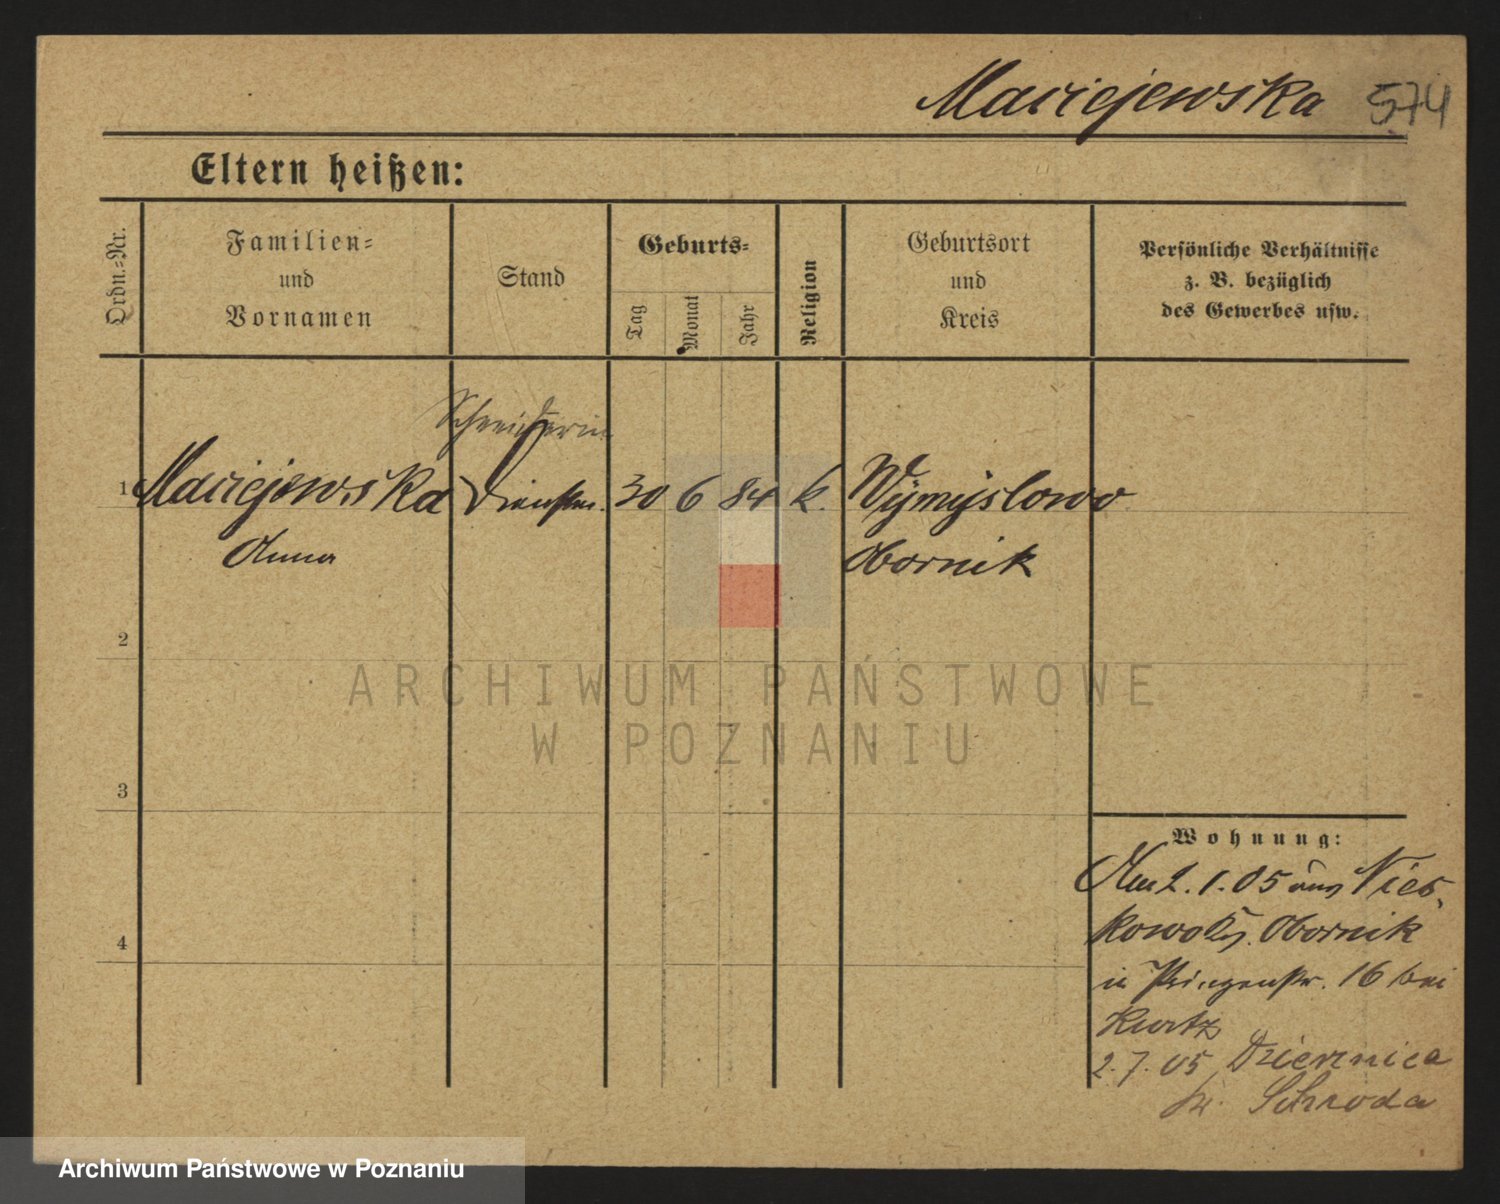 Maciejewska 574
Eltern heißen:
Ordn.-Nr.
Familien-
und
Vornamen
Stand
Geburts-
Tag
Monat
Jahr
Religion
Geburtsort
und
Kreis
Persönliche Verhältnisse
z. B. bezüglich
des Gewerbes usw.
Schneiderin
1 Maciejewska Dienstm. 30 6 84 k. Wymyslowo
Anna Obornik
2
ARCHIWUM PAŃSTWOWE
W POZNANIU
3
Wohnung:
2.1.05 aus
Obornik
4
in Prinzenstr. 16 bei
Kurtz
2.7.05 Dziernica
Kr. Schroda
Archiwum Państwowe w Poznaniu